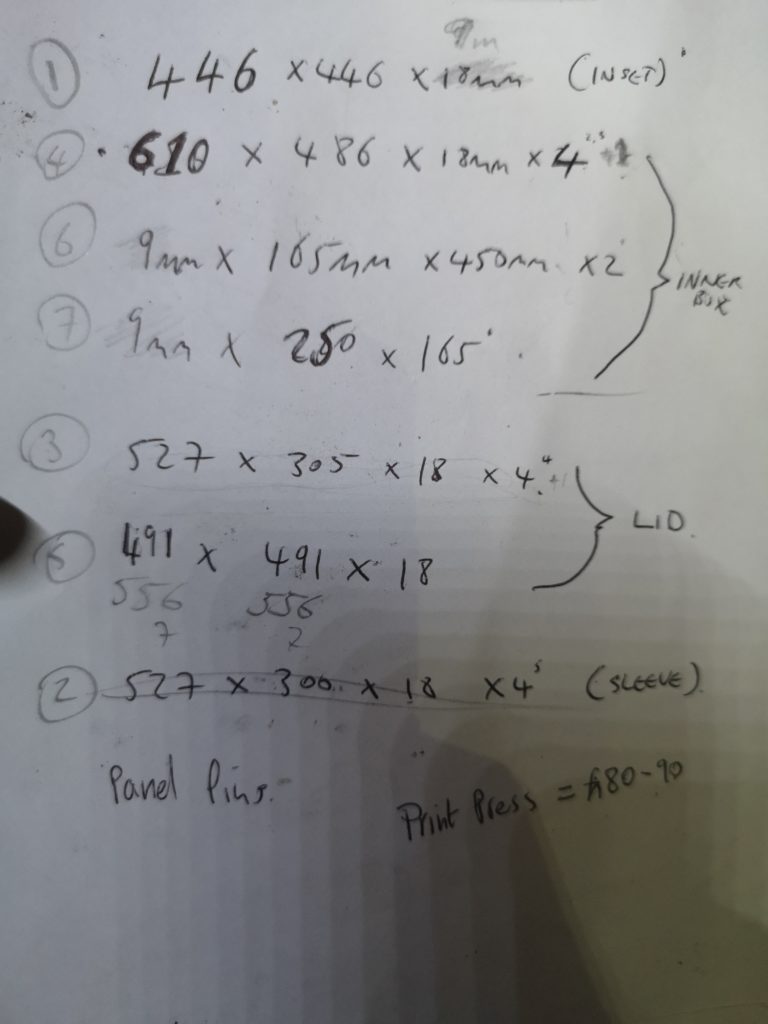 9m
① 446 x 446 x 18mm (INSET)
④ 610 x 486 x 18mm x 4
⑥ 9mm x 165mm x 450mm x 2
INNER BOX
⑦ 9mm x 250 x 165
③ 527 x 305 x 18 x 4 +1
LID.
⑤ 491 x 491 x 18
556 556
7 2
② 527 x 300 x 18 x 4 (SLEEVE)
Panel Pins.
Print Press = £80-90